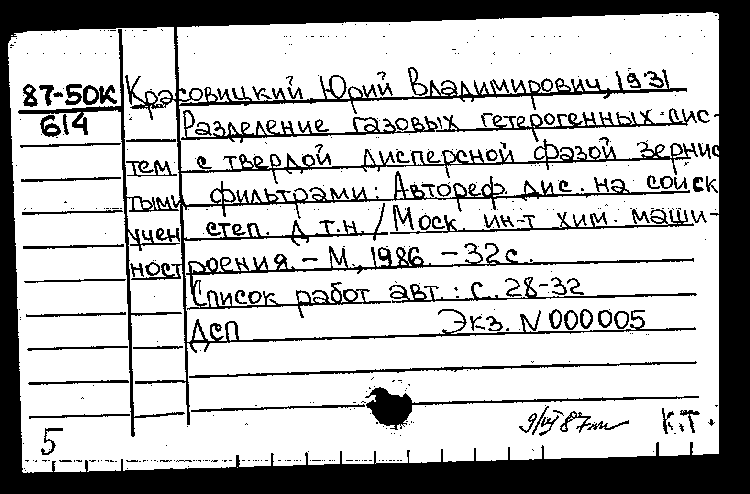 87-50К Красовицкий, Юрий Владимирович, 1931
614 Разделение газовых гетерогенных сис-
тем с твердой дисперсной фазой зернис
тыми фильтрами: Автореф. дис. на соиск
учен степ. д.т.н. / Моск. ин-т хим. маши-
ност роения. - М., 1986. - 32 с.
Список работ авт.: с. 28-32
ДСП Экз. N 000005
К.Т.
5